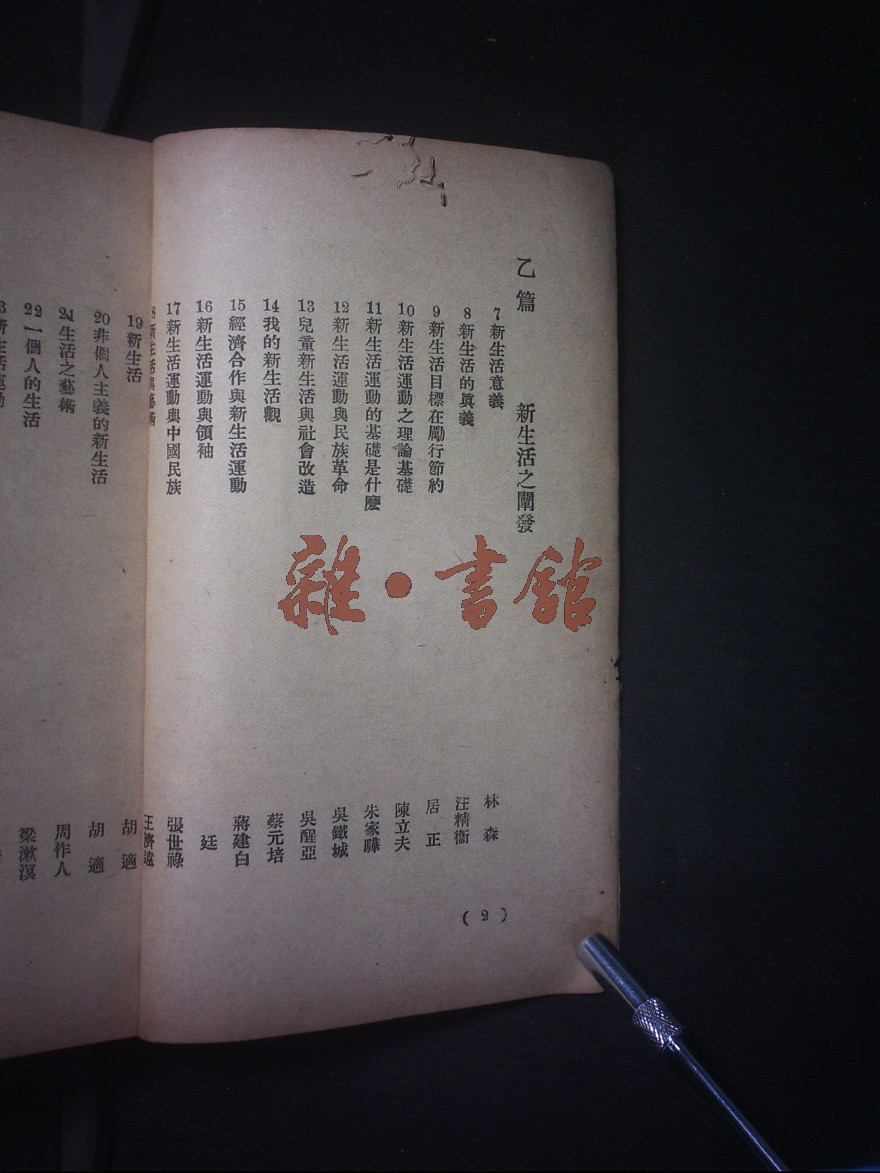 乙篇 新生活之闡發
7 新生活意義 林森
8 新生活的眞義 汪精衞
9 新生活目標在勵行節約 居正
10 新生活運動之理論基礎 陳立夫
11 新生活運動的基礎是什麽 朱家驊
12 新生活運動與民族革命 吳鐵城
13 兒童新生活與社會改造 吳醒亞
14 我的新生活觀 蔡元培
15 經濟合作與新生活運動 蔣建白
16 新生活運動與領袖 廷
17 新生活運動與中國民族 張世祿
8 新生活與藝術 王濟遠
(2)
19 新生活 胡適
20 非個人主義的新生活 胡適
21 生活之藝術 周作人
22 一個人的生活 梁漱溟
3 新生活運動
雜·書館